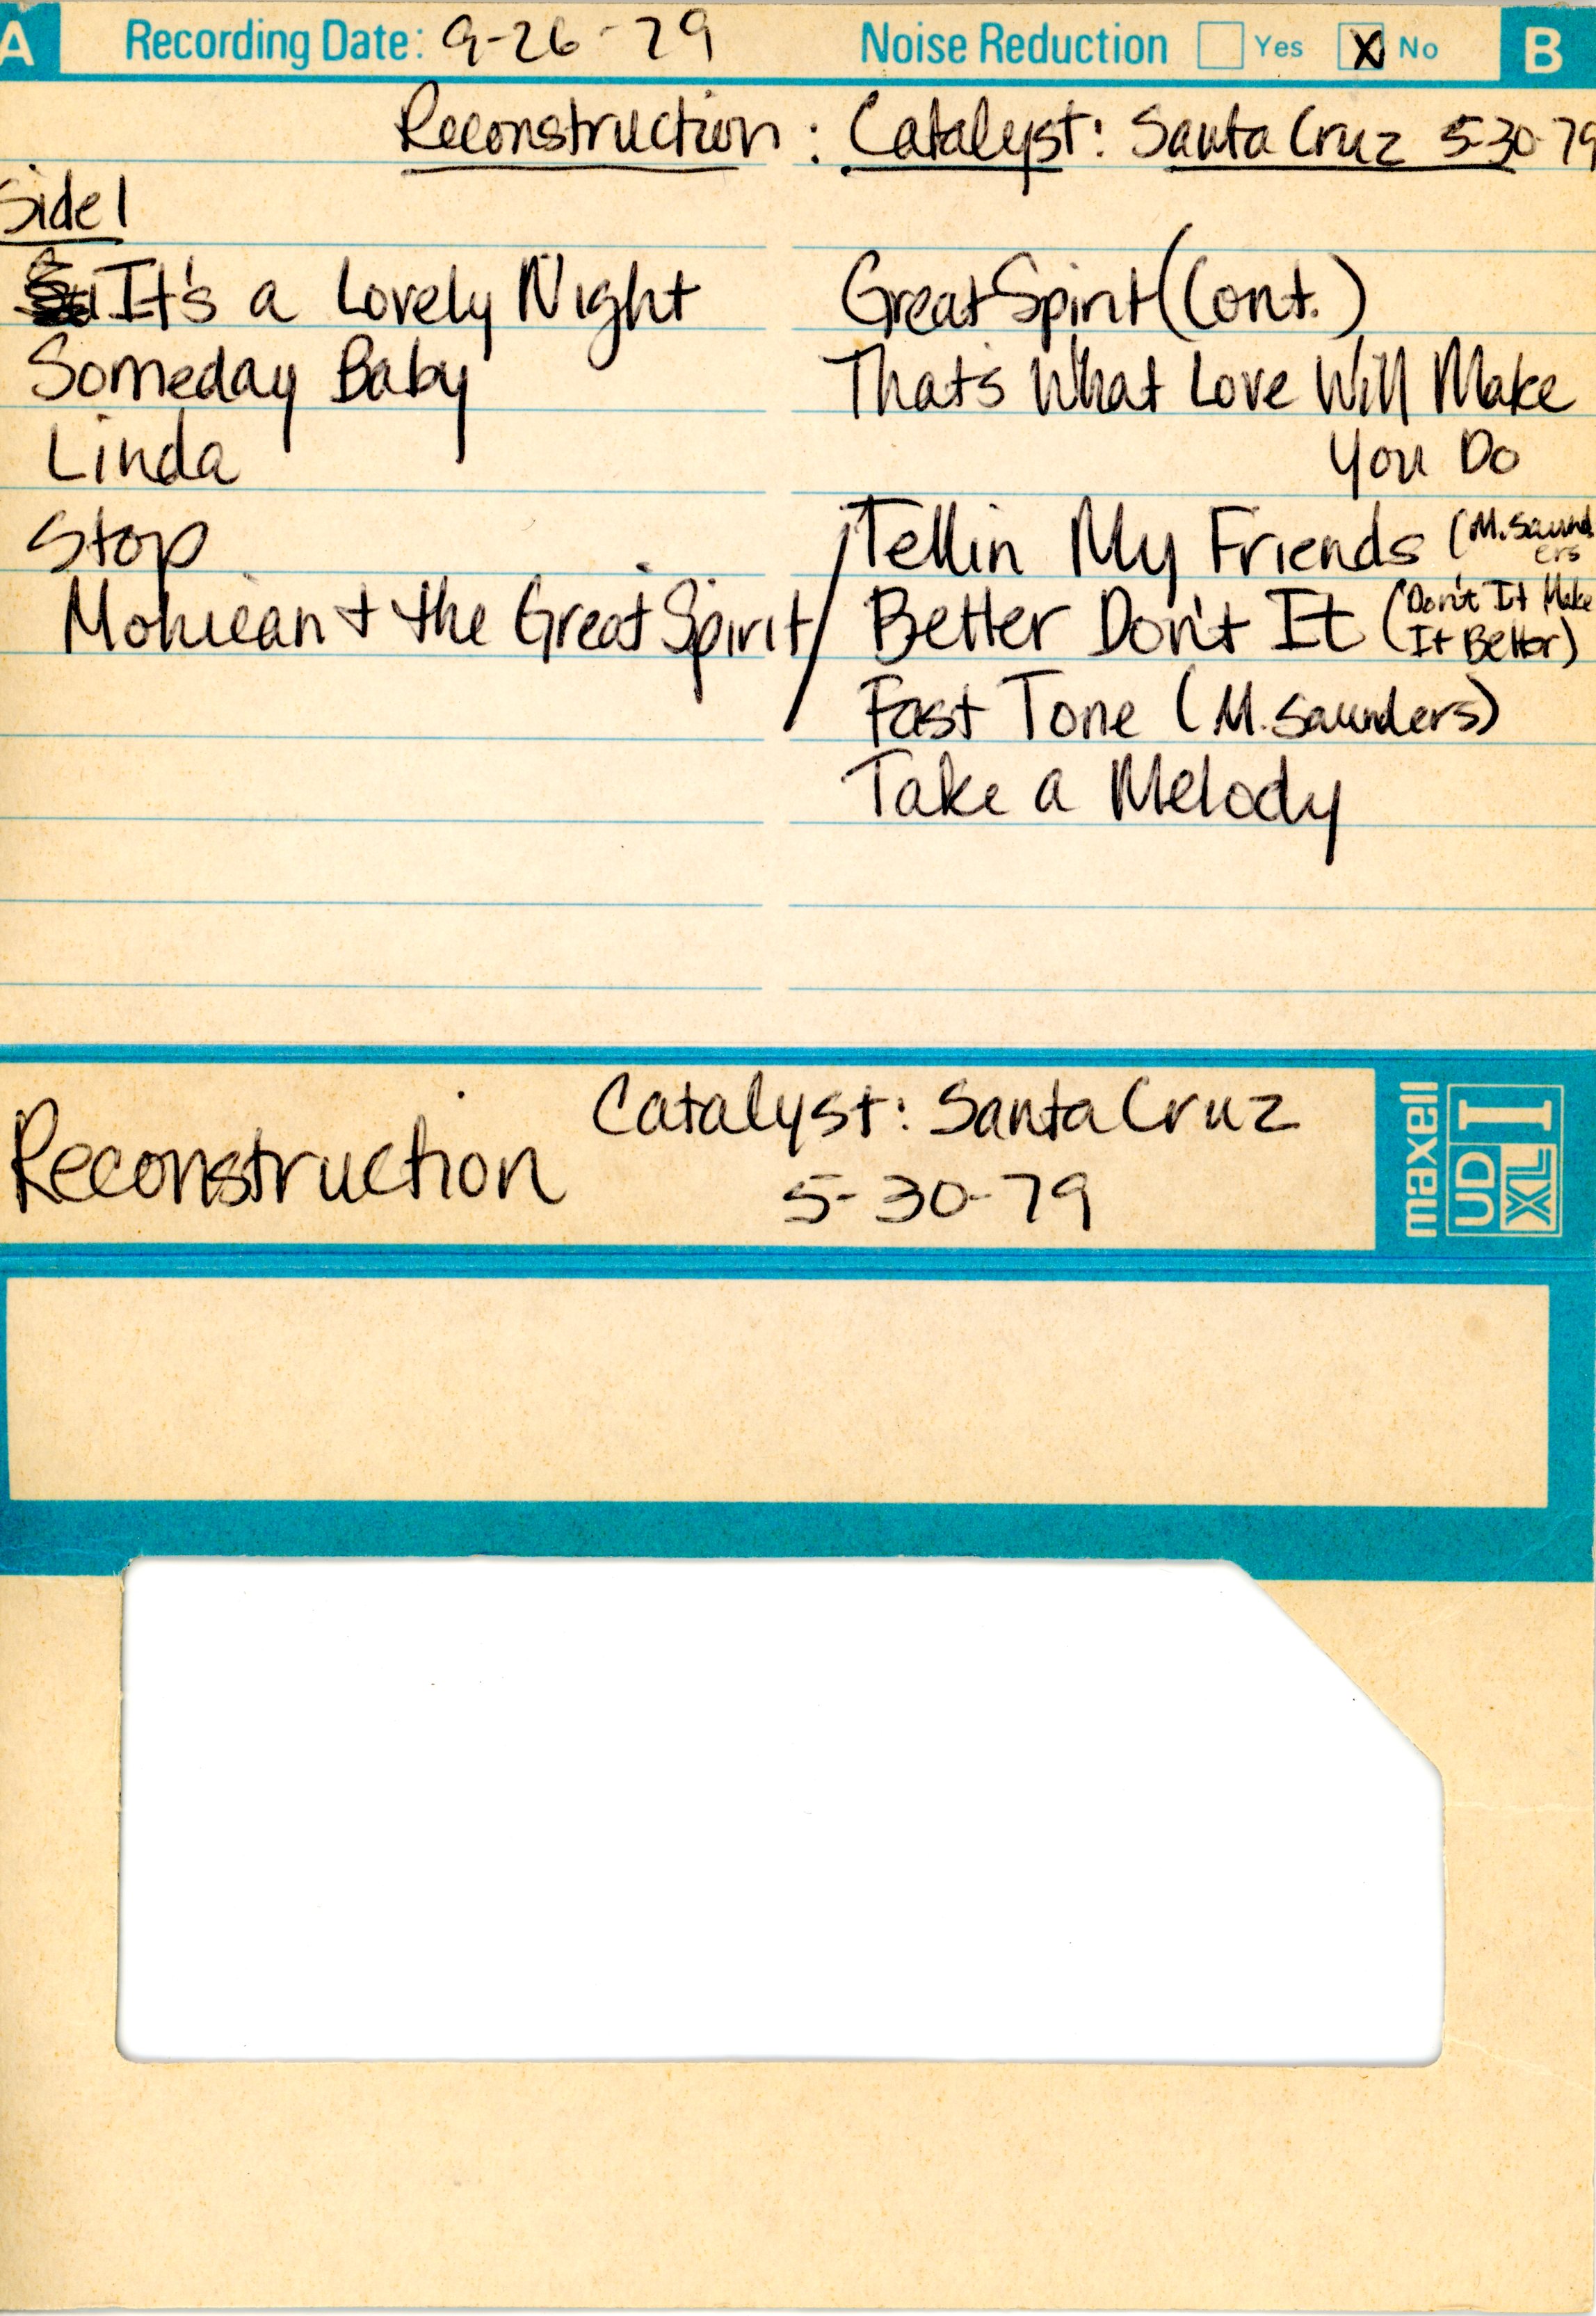 A Recording Date: 9-26-79 Noise Reduction Yes X No B
Reconstruction: Catalyst: Santa Cruz 5-30-79
Side 1
It's a Lovely Night
Someday Baby
Linda
Stop
Mohican + the Great Spirit/
Great Spirit (Cont.)
Thats What Love Will Make
You Do
Tellin My Friends (M. Saund
ers
Better Don't It (Don't It Make
It Better)
Fast Tone (M. Saunders)
Take a Melody
Reconstruction
Catalyst: Santa Cruz
5-30-79
maxell
UD
XL I